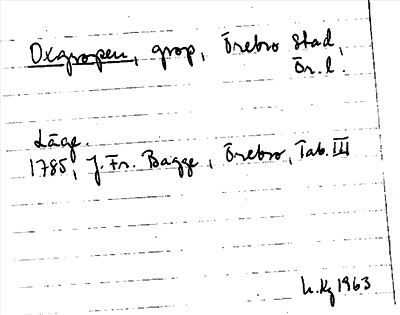 Oxgropen, grop, Örebro Stad,
Ör. l.
Läge.
1785, J. Fr. Bagge, Örebro, Tab. III
1963